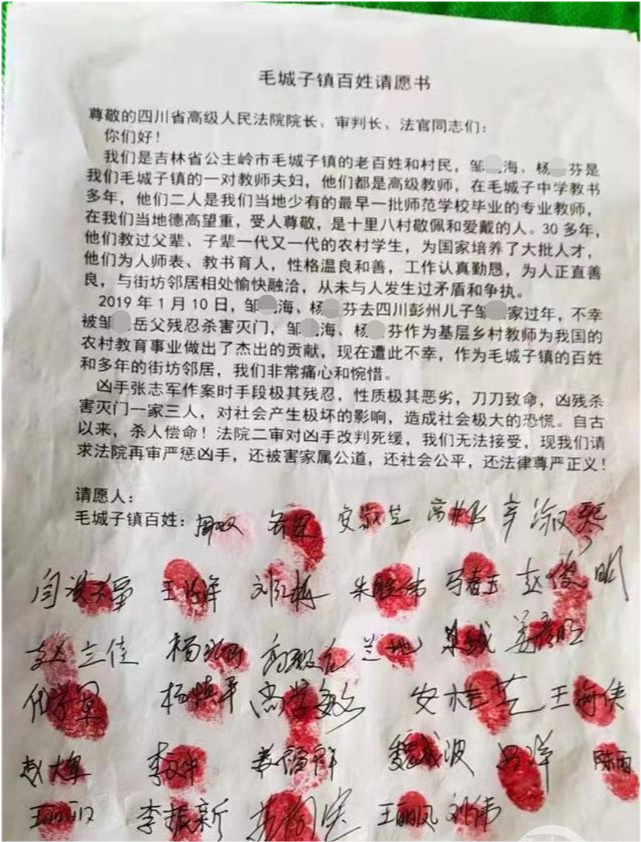 毛城子镇百姓请愿书
尊敬的四川省高级人民法院院长、审判长、法官同志们：
你们好！
我们是吉林省公主岭市毛城子镇的老百姓和村民，邹海、杨芬是
我们毛城子镇的一对教师夫妇，他们都是高级教师，在毛城子中学教书
多年，他们二人是我们当地少有的最早一批师范学校毕业的专业教师，
在我们当地德高望重，受人尊敬，是十里八村敬佩和爱戴的人。30多年，
他们教过父辈、子辈一代又一代的农村学生，为国家培养了大批人才，
他们为人师表、教书育人，性格温良和善，工作认真勤恳，为人正直善
良，与街坊邻居相处愉快融洽，从未与人发生过矛盾和争执。
2019年1月10日，邹海、杨芬去四川彭州儿子邹家过年，不幸
被邹岳父残忍杀害灭门，邹海、杨芬作为基层乡村教师为我国的
农村教育事业做出了杰出的贡献，现在遭此不幸，作为毛城子镇的百姓
和多年的街坊邻居，我们非常痛心和惋惜。
凶手张志军作案时手段极其残忍，性质极其恶劣，刀刀致命，凶残杀
害灭门一家三人，对社会产生极坏的影响，造成社会极大的恐慌。自古
以来，杀人偿命！法院二审对凶手改判死缓，我们无法接受，现我们请
求法院再审严惩凶手，还被害家属公道，还社会公平，还法律尊严正义！
请愿人：
毛城子镇百姓：
刘红梅 朱胜伟 马春玉 赵俊明
赵立佳
安桂芝 王海侠
陈雨
李振新 王丽凤 刘伟